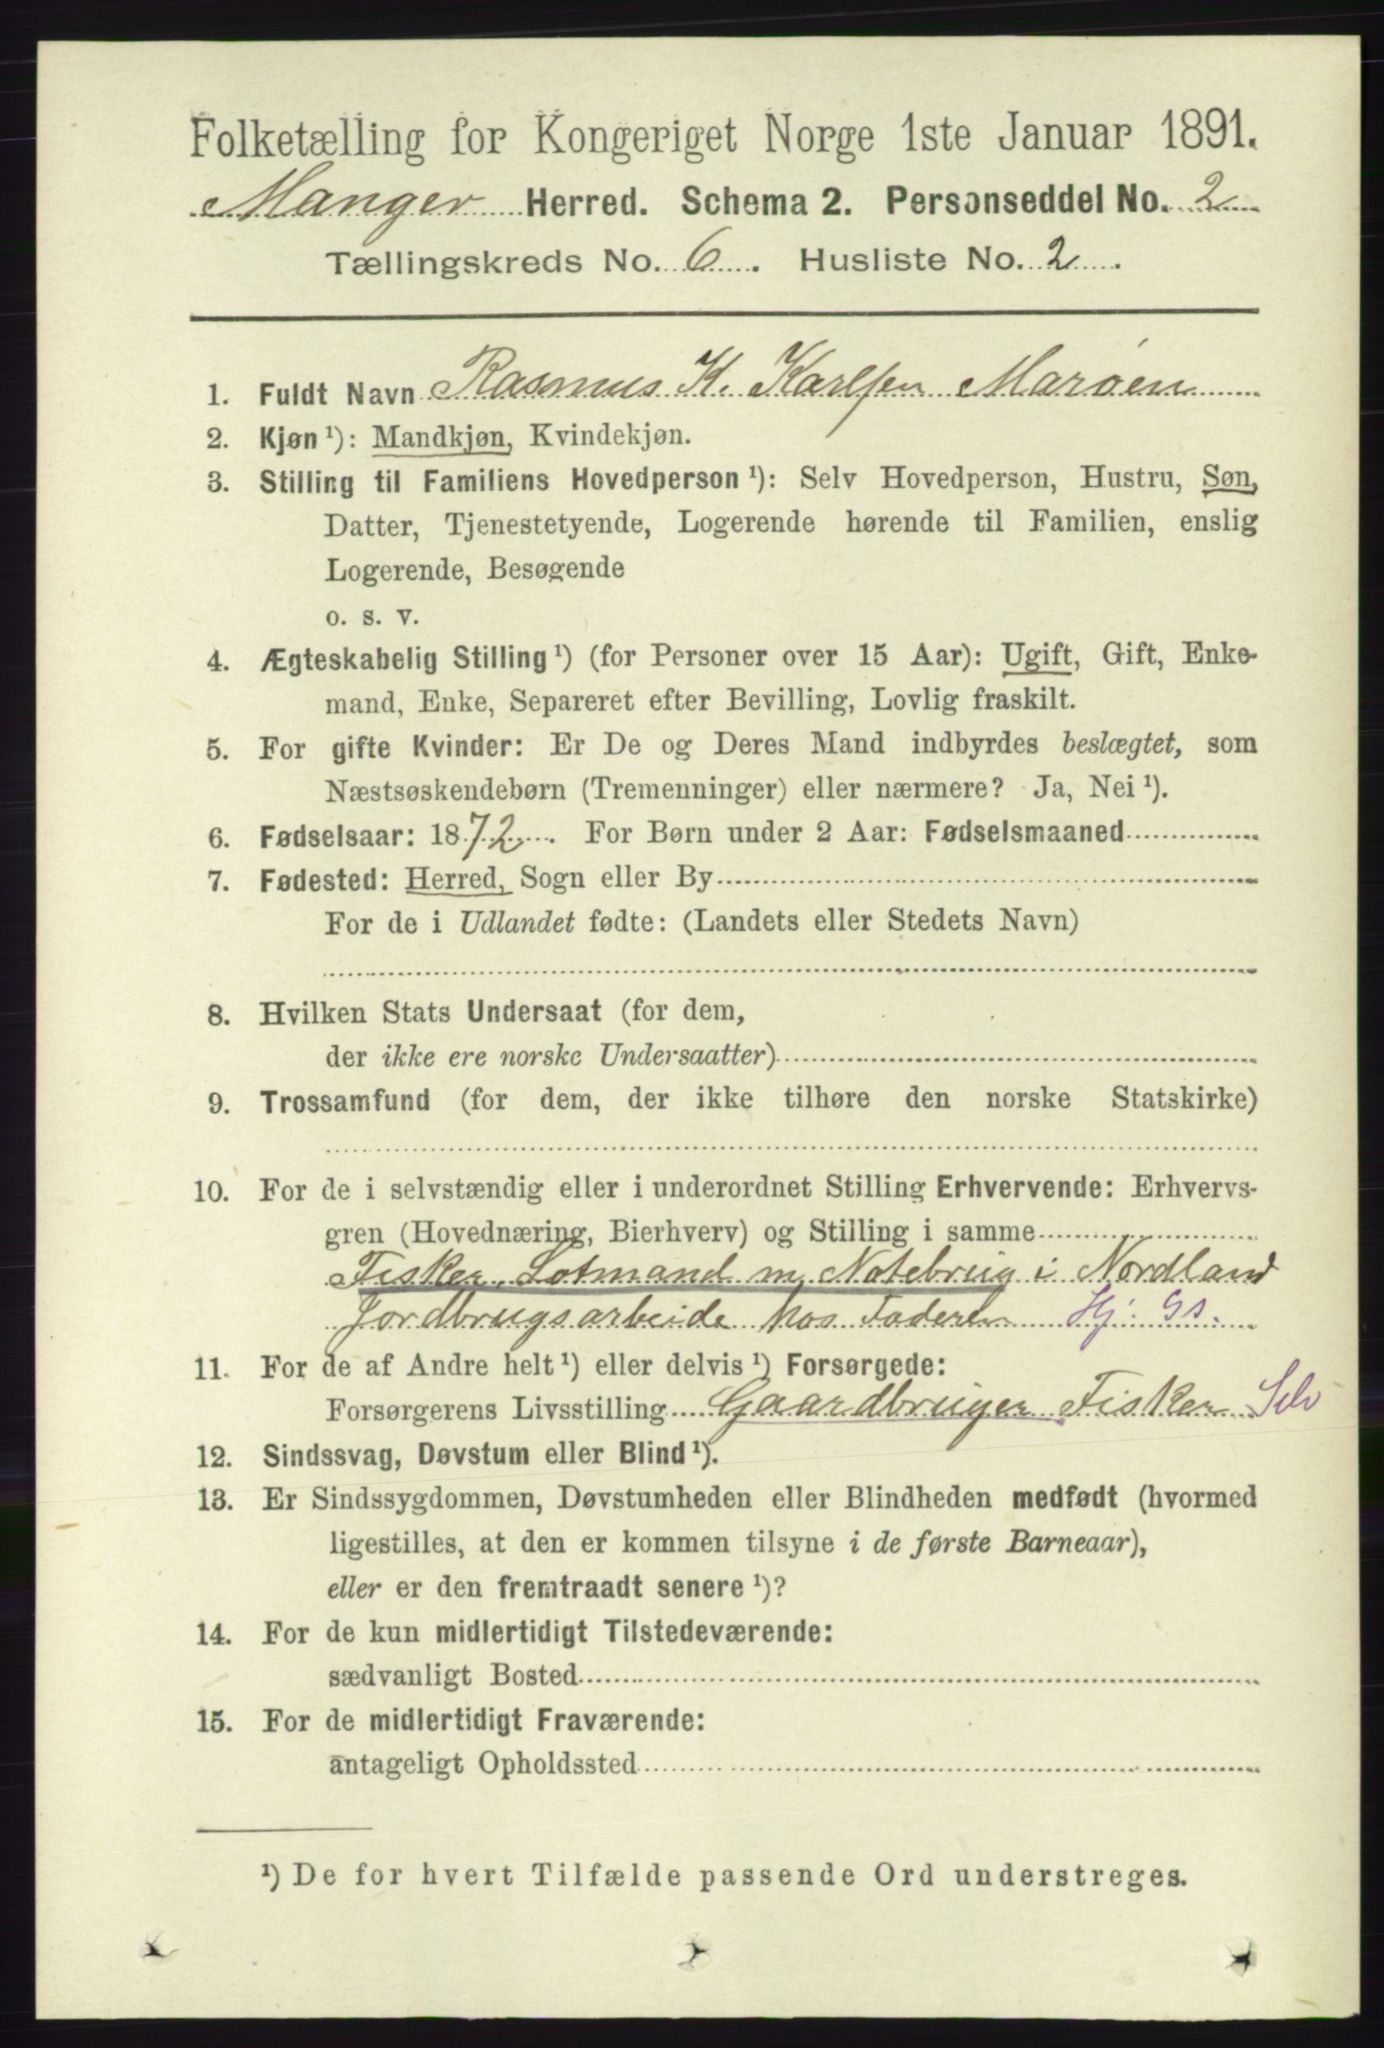 Folketælling for Kongeriget Norge 1ste Januar 1891.
Manger Herred. Schema 2. Personseddel No. 2
Tællingskreds No. 6. Husliste No. 2.
1. Fuldt Navn Rasmus K. Karlsen Marøen
2. Kjøn ¹): Mandkjøn, Kvindekjøn.
3. Stilling til Familiens Hovedperson ¹): Selv Hovedperson, Hustru, Søn,
Datter, Tjenestetyende, Logerende hørende til Familien, enslig
Logerende, Besøgende
o. s. v.
4. Ægteskabelig Stilling ¹) (for Personer over 15 Aar): Ugift, Gift, Enke-
mand, Enke, Separeret efter Bevilling, Lovlig fraskilt.
5. For gifte Kvinder: Er De og Deres Mand indbyrdes beslægtet, som
Næstsøskendebørn (Tremenninger) eller nærmere? Ja, Nei ¹).
6. Fødselsaar: 1872. For Børn under 2 Aar: Fødselsmaaned
7. Fødested: Herred, Sogn eller By
For de i Udlandet fødte: (Landets eller Stedets Navn)
8. Hvilken Stats Undersaat (for dem,
der ikke ere norske Undersaatter)
9. Trossamfund (for dem, der ikke tilhøre den norske Statskirke)
10. For de i selvstændig eller i underordnet Stilling Erhvervende: Erhvervs-
gren (Hovednæring, Bierhverv) og Stilling i samme
Fisker, Lotmand m Notebrug i Nordland
Jordbrugsarbeide hos Faderen Hj. Gs.
11. For de af Andre helt ¹) eller delvis ¹) Forsørgede:
Forsørgerens Livsstilling Gaardbruger Fisker Selv
12. Sindssvag, Døvstum eller Blind ¹).
13. Er Sindssygdommen, Døvstumheden eller Blindheden medfødt (hvormed
ligestilles, at den er kommen tilsyne i de første Barneaar),
eller er den fremtraadt senere ¹)?
14. For de kun midlertidigt Tilstedeværende:
sædvanligt Bosted
15. For de midlertidigt Fraværende:
antageligt Opholdssted
¹) De for hvert Tilfælde passende Ord understreges.